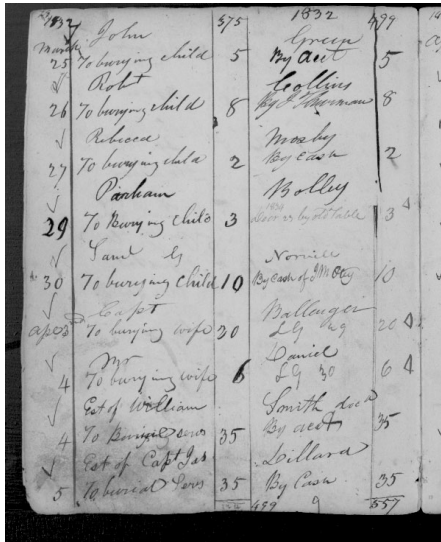 1832 575 1832 499
March John Green
25 To burying child 5 By acct 5
Robt Collins
26 To burying child 8 By J Thurman 8
Rebecca Mosby
27 To burying child 2 By Cash 2
Parham Bolley
29 To Burying child 3 by old table 3
Saml G Norvell
30 To burying Child 10 By Cash of J M Oty 10
Capt Ballenger
Ap 3 To burying wife 20 LG 29 20
Mr Daniel
4 To burying wife 6 LG 30 6
Est of William Smith decd
4 To Burial servs 35 By acct 35
Est of Capt Jas Dillard
5 To burial Servs 35 By Cash 35
499 9 557